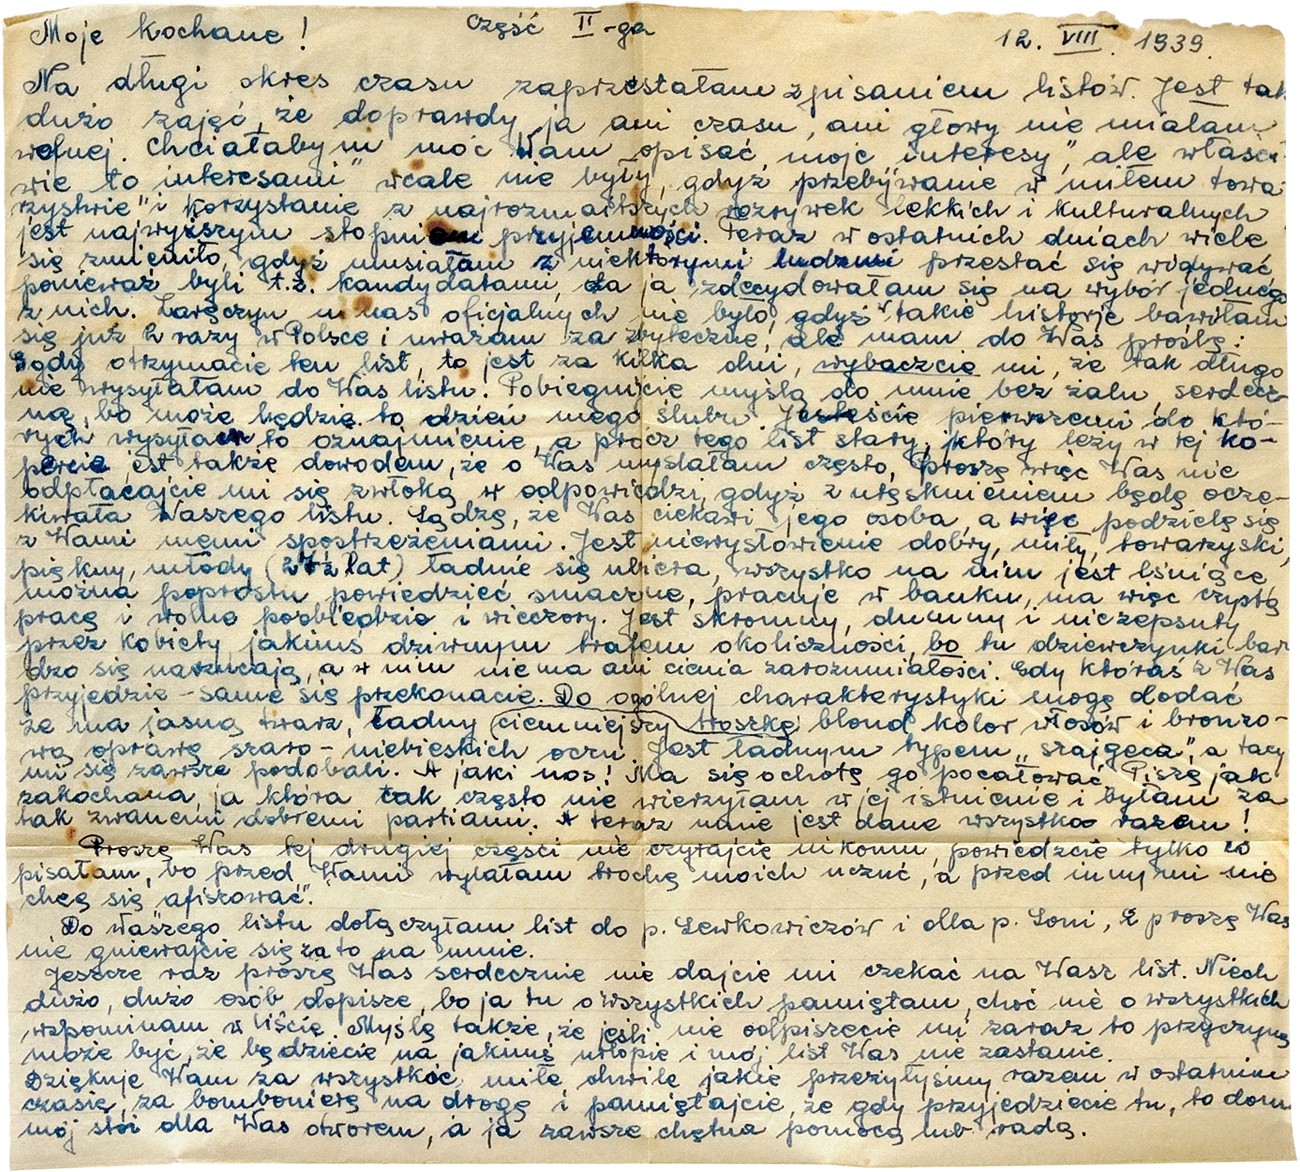 Moje kochane! Część II-ga 12. VIII. 1939.
Na długi okres czasu zaprzestałam z pisaniem listów. Jest tak
dużo zajęć, że doprawdy ja ani czasu, ani głowy nie miałam
wolnej. Chciałabym móc Wam opisać moje „interesy", ale właści-
wie to interesami" wcale nie były, gdyż przebywanie w miłem towa-
rzystwie" i korzystanie z najrozmaitszych rozrywek lekkich i kulturalnych
jest najwyższym stopniem przyjemności. Teraz w ostatnich dniach wiele
się zmieniło, gdyż musiałam z niektórymi ludźmi przestać się widywać,
ponieważ byli t.z. kandydatami, a ja zdecydowałam się na wybór jednego
z nich. Zaręczyn u nas oficjalnych nie było, gdyż w takie historje bawiłam
się już 2 razy w Polsce i uważam za zbyteczne, ale mam do Was prośbę:
Gdy otrzymacie ten list, to jest za kilka dni, wybaczcie mi, że tak długo
nie wysyłałam do Was listu. Pobiegnijcie myślą do mnie bez żalu, serdecz-
ną, bo może będzie to dzień mego ślubu. Jesteście pierwszemi do któ-
rych wysyłam to oznajmienie, a prócz tego list stary, który leży w tej ko-
percie jest także dowodem, że o Was myślałam często, proszę więc Was nie
odpłacajcie mi się zwłoką w odpowiedzi, gdyż z utęsknieniem będę ocze-
kiwała Waszego listu. Sądzę, że Was ciekawi jego osoba, a więc podzielę się
z Wami memi spostrzeżeniami. Jest niewysłowienie dobry, miły, towarzyski,
piękny, młody (27½ lat) ładnie się ubiera, wszystko na nim jest lśniące
można poprostu powiedzieć smaczne, pracuje w banku, ma więc czystą
pracę i wolne poobiedzia i wieczory. Jest skromny, dumny i niezepsuty
przez kobiety jakimś dziwnym trafem okoliczności, bo tu dziewczynki bar
dzo się narzucają, a w nim nie ma ani cienia zarozumiałości. Gdy któraś z Was
przyjedzie - same się przekonacie. Do ogólnej charakterystyki mogę dodać
że ma jasną twarz, ładny (ciemniejszy troszkę) blond kolor włosów i bronzo-
wą oprawę szaro-niebieskich oczu. Jest ładnym typem „szajgeca", a tacy
mi się zawsze podobali. A jaki nos! Ma się ochotę go pocałować. Piszę jak
zakochana, ja która tak często nie wierzyłam w jej istnienie i byłam za
tak zwanemi dobremi partiami. A teraz mnie jest dane wszystko razem!
Proszę Was tej drugiej części nie czytajcie nikomu, powiedzcie tylko co
pisałam, bo przed Wami wylałam trochę moich uczuć, a przed innymi nie
chcę się afiszować".
Do waszego listu dołączyłam list do p. Lewkowiczów i dla p. Soni, proszę Was
nie gniewajcie się za to na mnie.
Jeszcze raz proszę Was serdecznie nie dajcie mi czekać na Wasz list. Niech
dużo, dużo osób dopisze, bo ja tu o wszystkich pamiętam, choć nie o wszystkich
wspominam w liście. Myślę także, że jeśli nie odpiszecie mi zaraz to przyczyną
może być, że będziecie na jakimś urlopie i mój list Was nie zastanie.
Dziękuję Wam za wszystkie miłe chwile jakie przeżyłyśmy razem w ostatnim
czasie, za bombonierę na drogę i pamiętajcie, że gdy przyjedziecie tu, to dom
mój stoi dla Was otworem, a ja zawsze chętna pomocą lub radą.